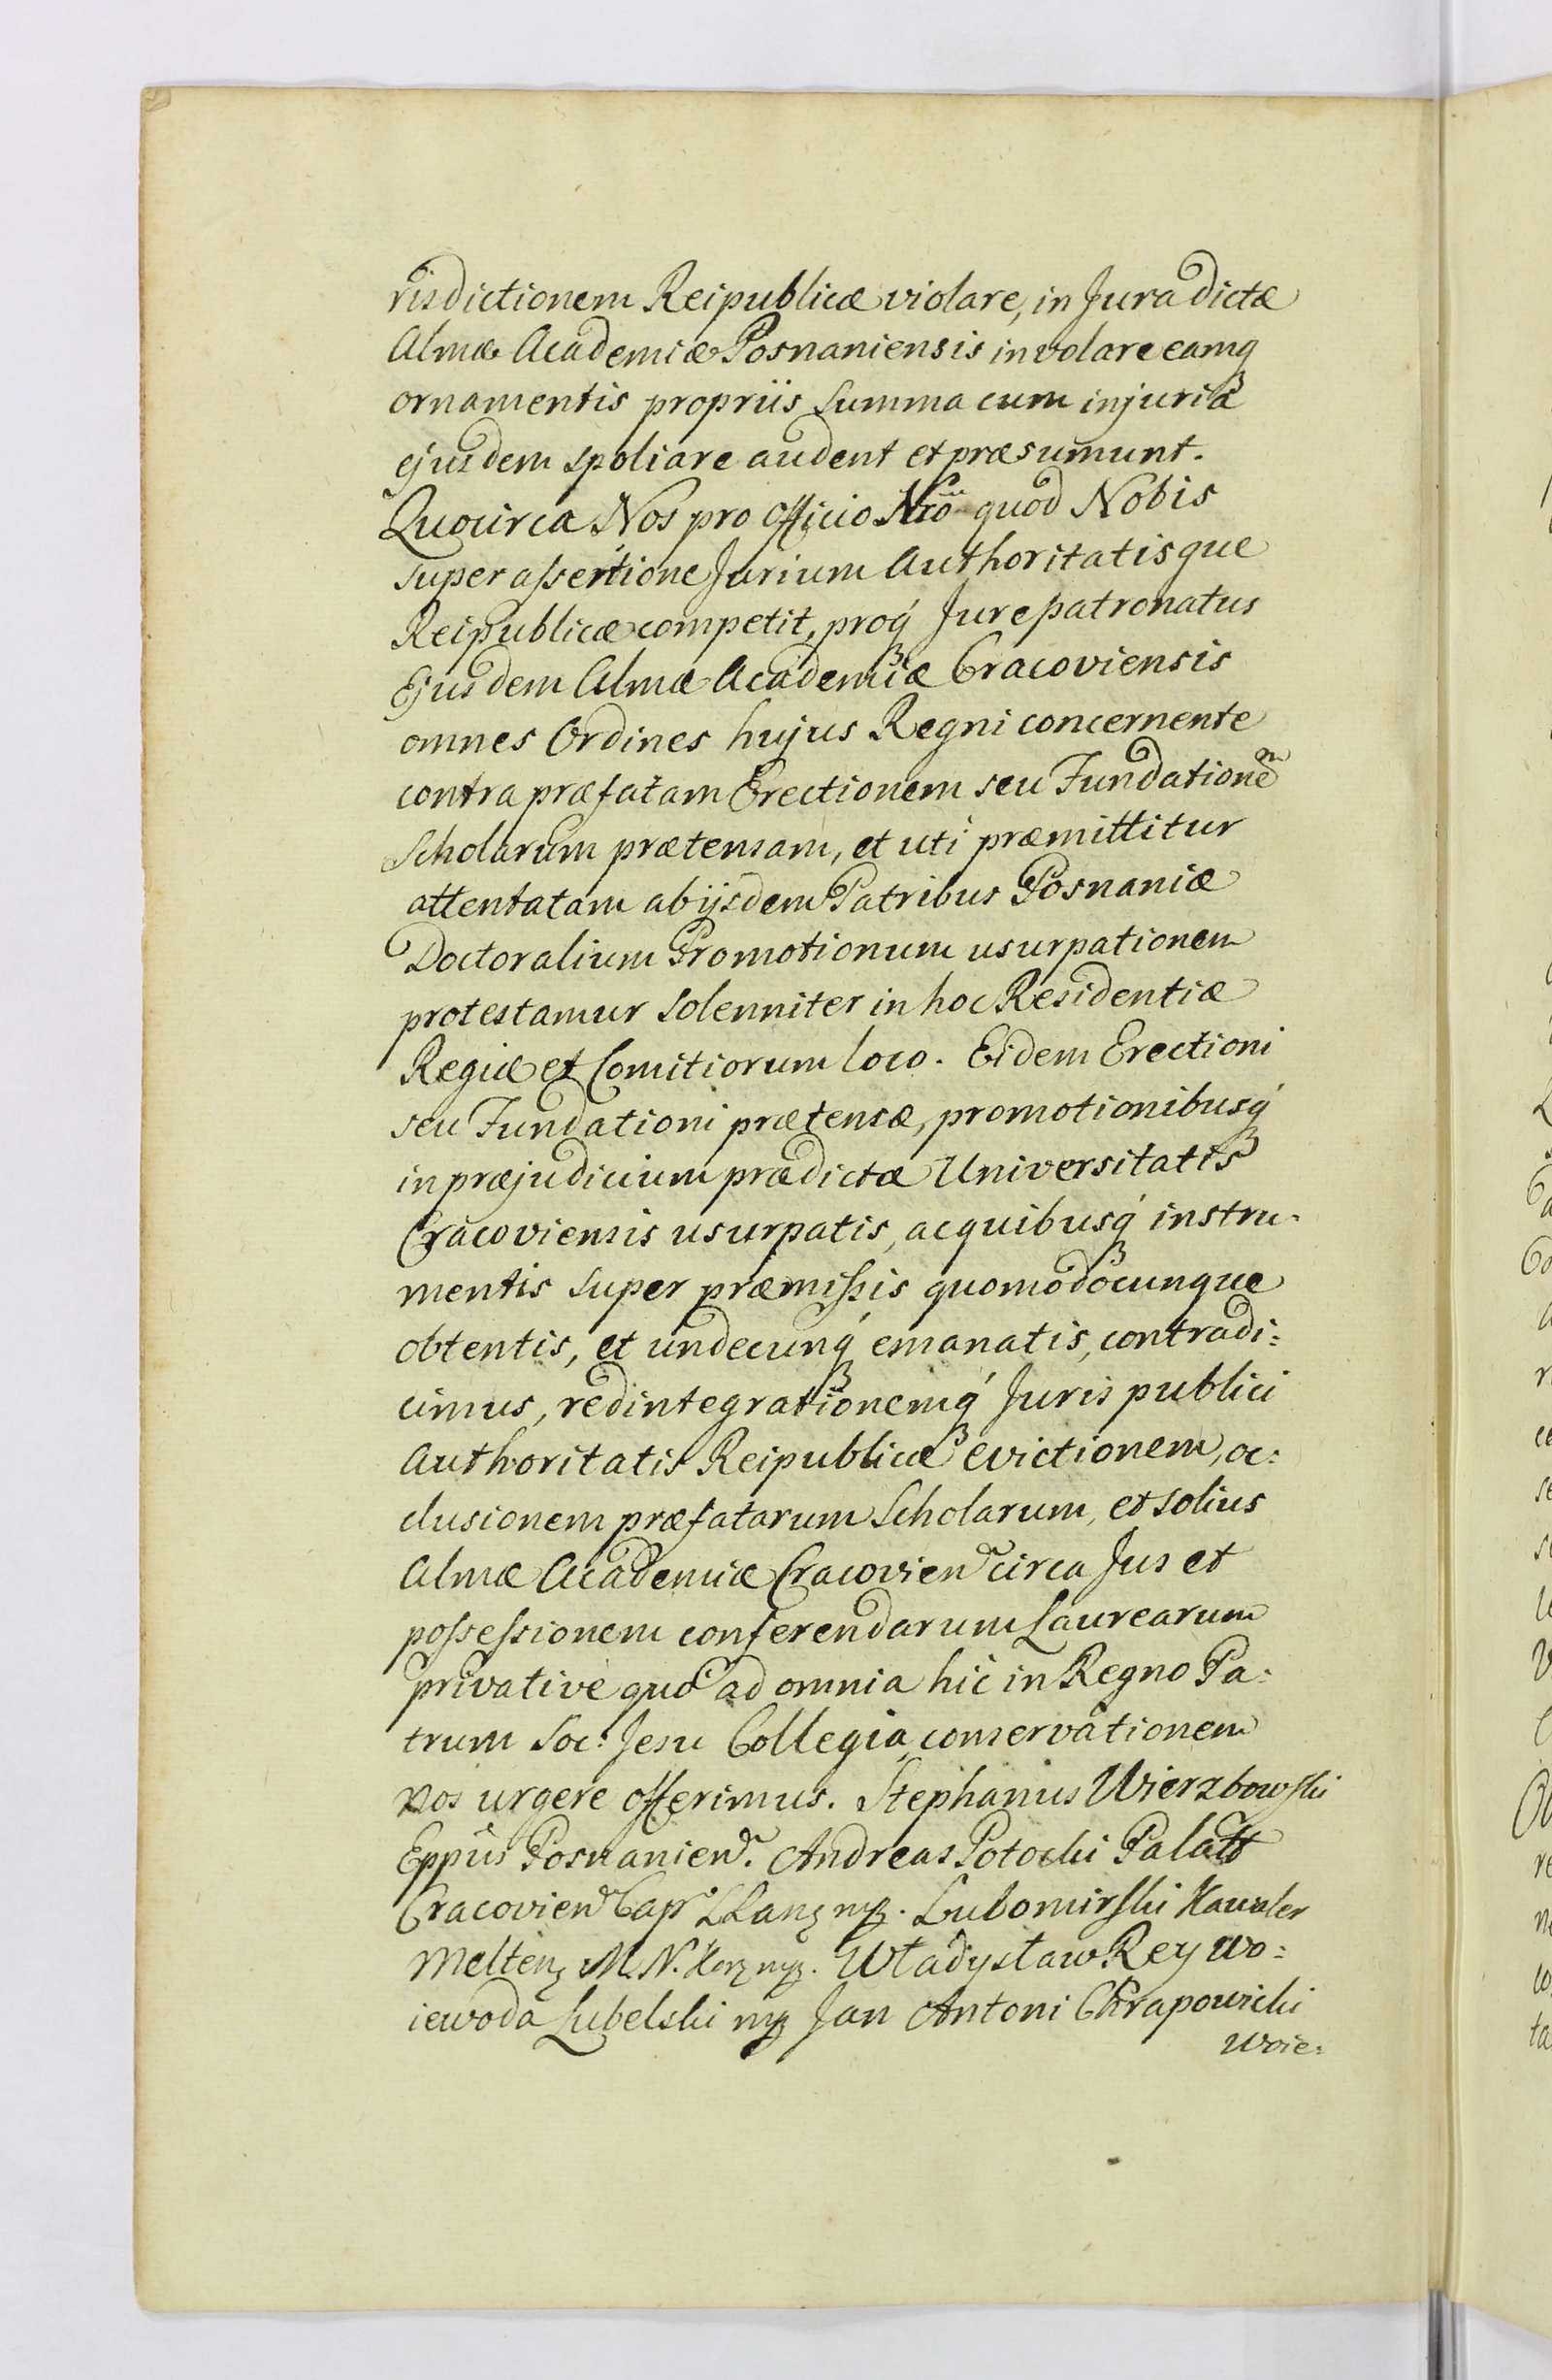 risdictionem Reipublicæ violare, in Jura dictæ
Almæ Academiæ Posnaniensis involare eamq́
ornamentis propriis summa cum injuria
ejusdem spoliare audent et præsumunt.
Quocirca Nos pro officio Nrõ quod Nobis
super assertione Jurium Authoritatisque
Reipublicæ competit, proq́ Jure patronatus
Ejusdem Almæ Academiæ Cracoviensis
omnes Ordines hujus Regni concernente
contra præfatam Erectionem seu Fundationem
Scholarum prætensam, et uti præmittitur
attentatam ab ijsdem Patribus Posnaniæ
Doctoralium Promotionum usurpationem
protestamur solenniter in hoc Residentiæ
Regiæ et Comitiorum loco. Eidem Erectioni
seu Fundationi prætensæ, promotionibusq́
in præjudicium prædictæ Universitatis
Cracoviensis usurpatis, ac quibusq́ instru-
mentis super præmissis quomodocunque
obtentis, et undecunq́ emanatis, contradi:
cimus, redintegrationemq́ Juris publici
Authoritatis Reipublicæ evictionem, oc:
clusionem præfatarum Scholarum, et solius
Almæ Academiæ Cracovien circa Jus et
possessionem conferendarum Laurearum
privativè quo ad omnia hic in Regno Pa:
trum Soc: Jesu Collegia, conservationem
nos urgere offerimus. Stephanus Wierzbowski
Eppus Posnanien. Andreas Potocki Palatt
Cracovien Cap Lubomirski Kawaler
M. N. Władysław Rey Wo:
iewoda Lubelski mp Jan Antoni Chrapowicki
Woie: